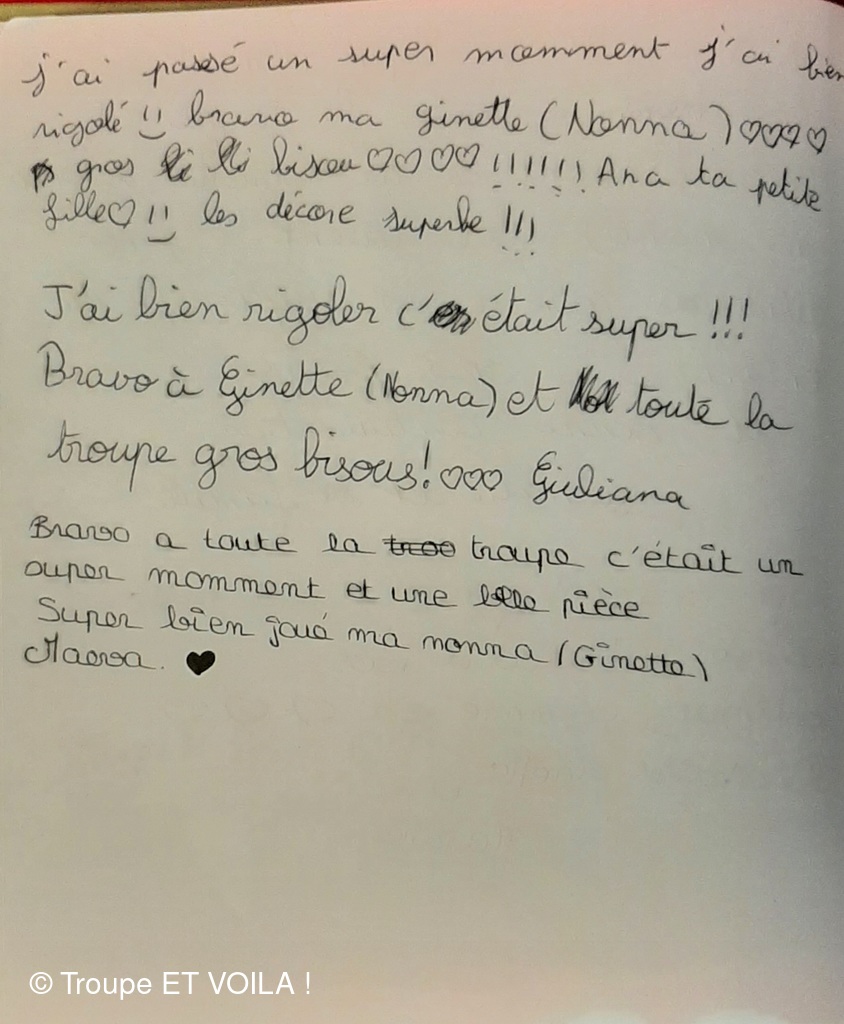 j'ai passé un super momment j'ai bien
rigolé !! bravo ma ginette (Nonna) ♡♡♡♡
gros bisou ♡♡♡♡ !!!!!! Ana ta petite
fille ♡ !! les décore superbe !!!
J'ai bien rigoler c'était super !!!
Bravo à Ginette (Nonna) et toute la
troupe gros bisous! ♡♡♡ Giuliana
Bravo a toute la troupe c'était un
super momment et une belle pièce
Super bien joué ma nonna (Ginette)
Maeva. ♥
© Troupe ET VOILA !